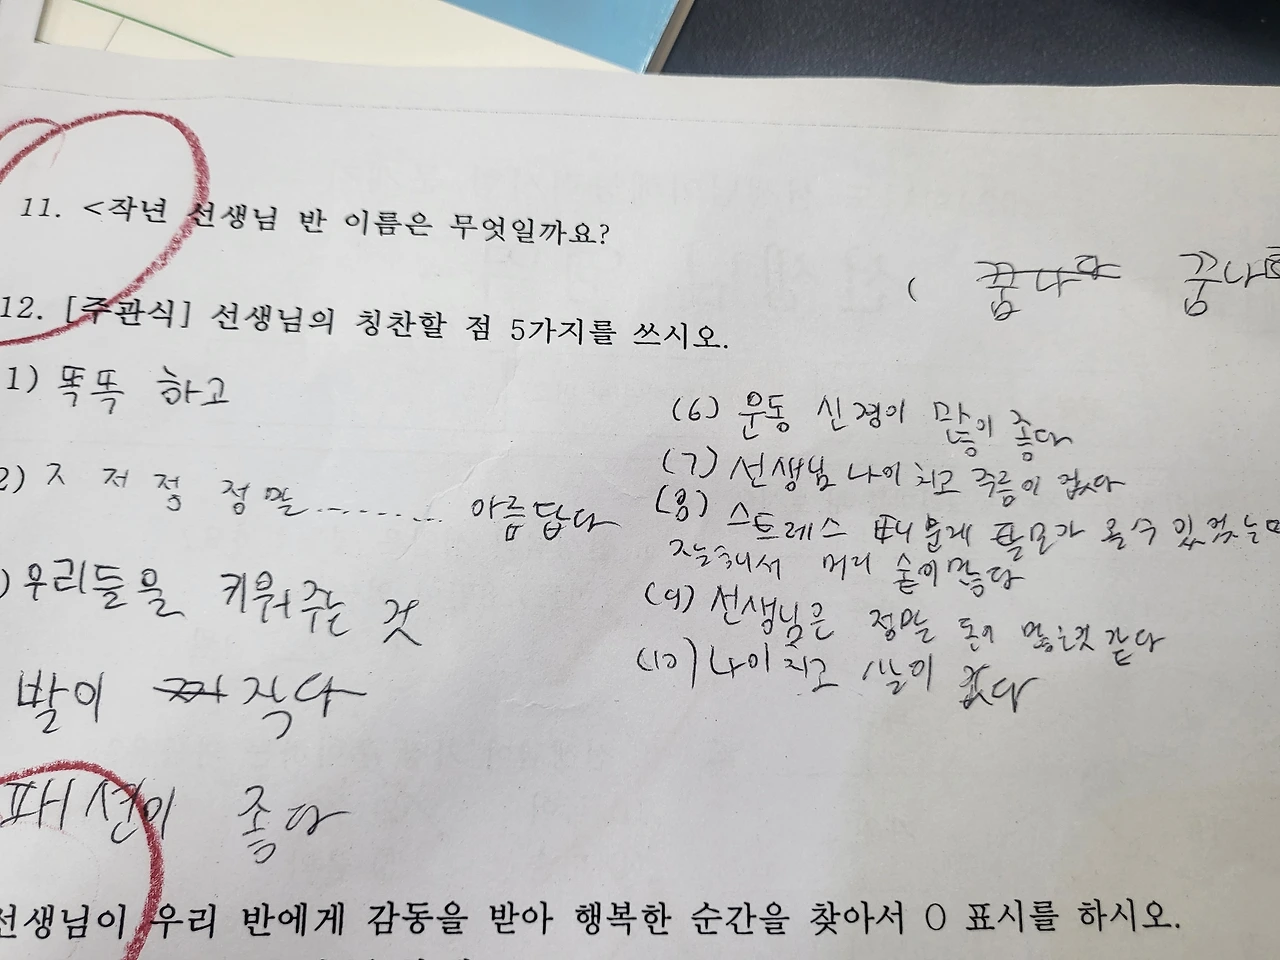 11. <작년 선생님 반 이름은 무엇일까요?
( 꿈나라 꿈나
12. [주관식] 선생님의 칭찬할 점 5가지를 쓰시오.
1) 똑똑 하고
2) ㅈ 저 정 정말......... 아름답다
) 우리들을 키워주는 것
발이 작다
패션이 좋다
(6) 운동 신경이 많이 좋다
(7) 선생님 나이 치고 주름이 없다
(8) 스트레스 때문에 탈모가 올 수 있
머리 숱이 많다
(9) 선생님은 정말 돈이 많은것 같다
(10) 나이 치고 살이 없다
선생님이 우리 반에게 감동을 받아 행복한 순간을 찾아서 O 표시를 하시오.